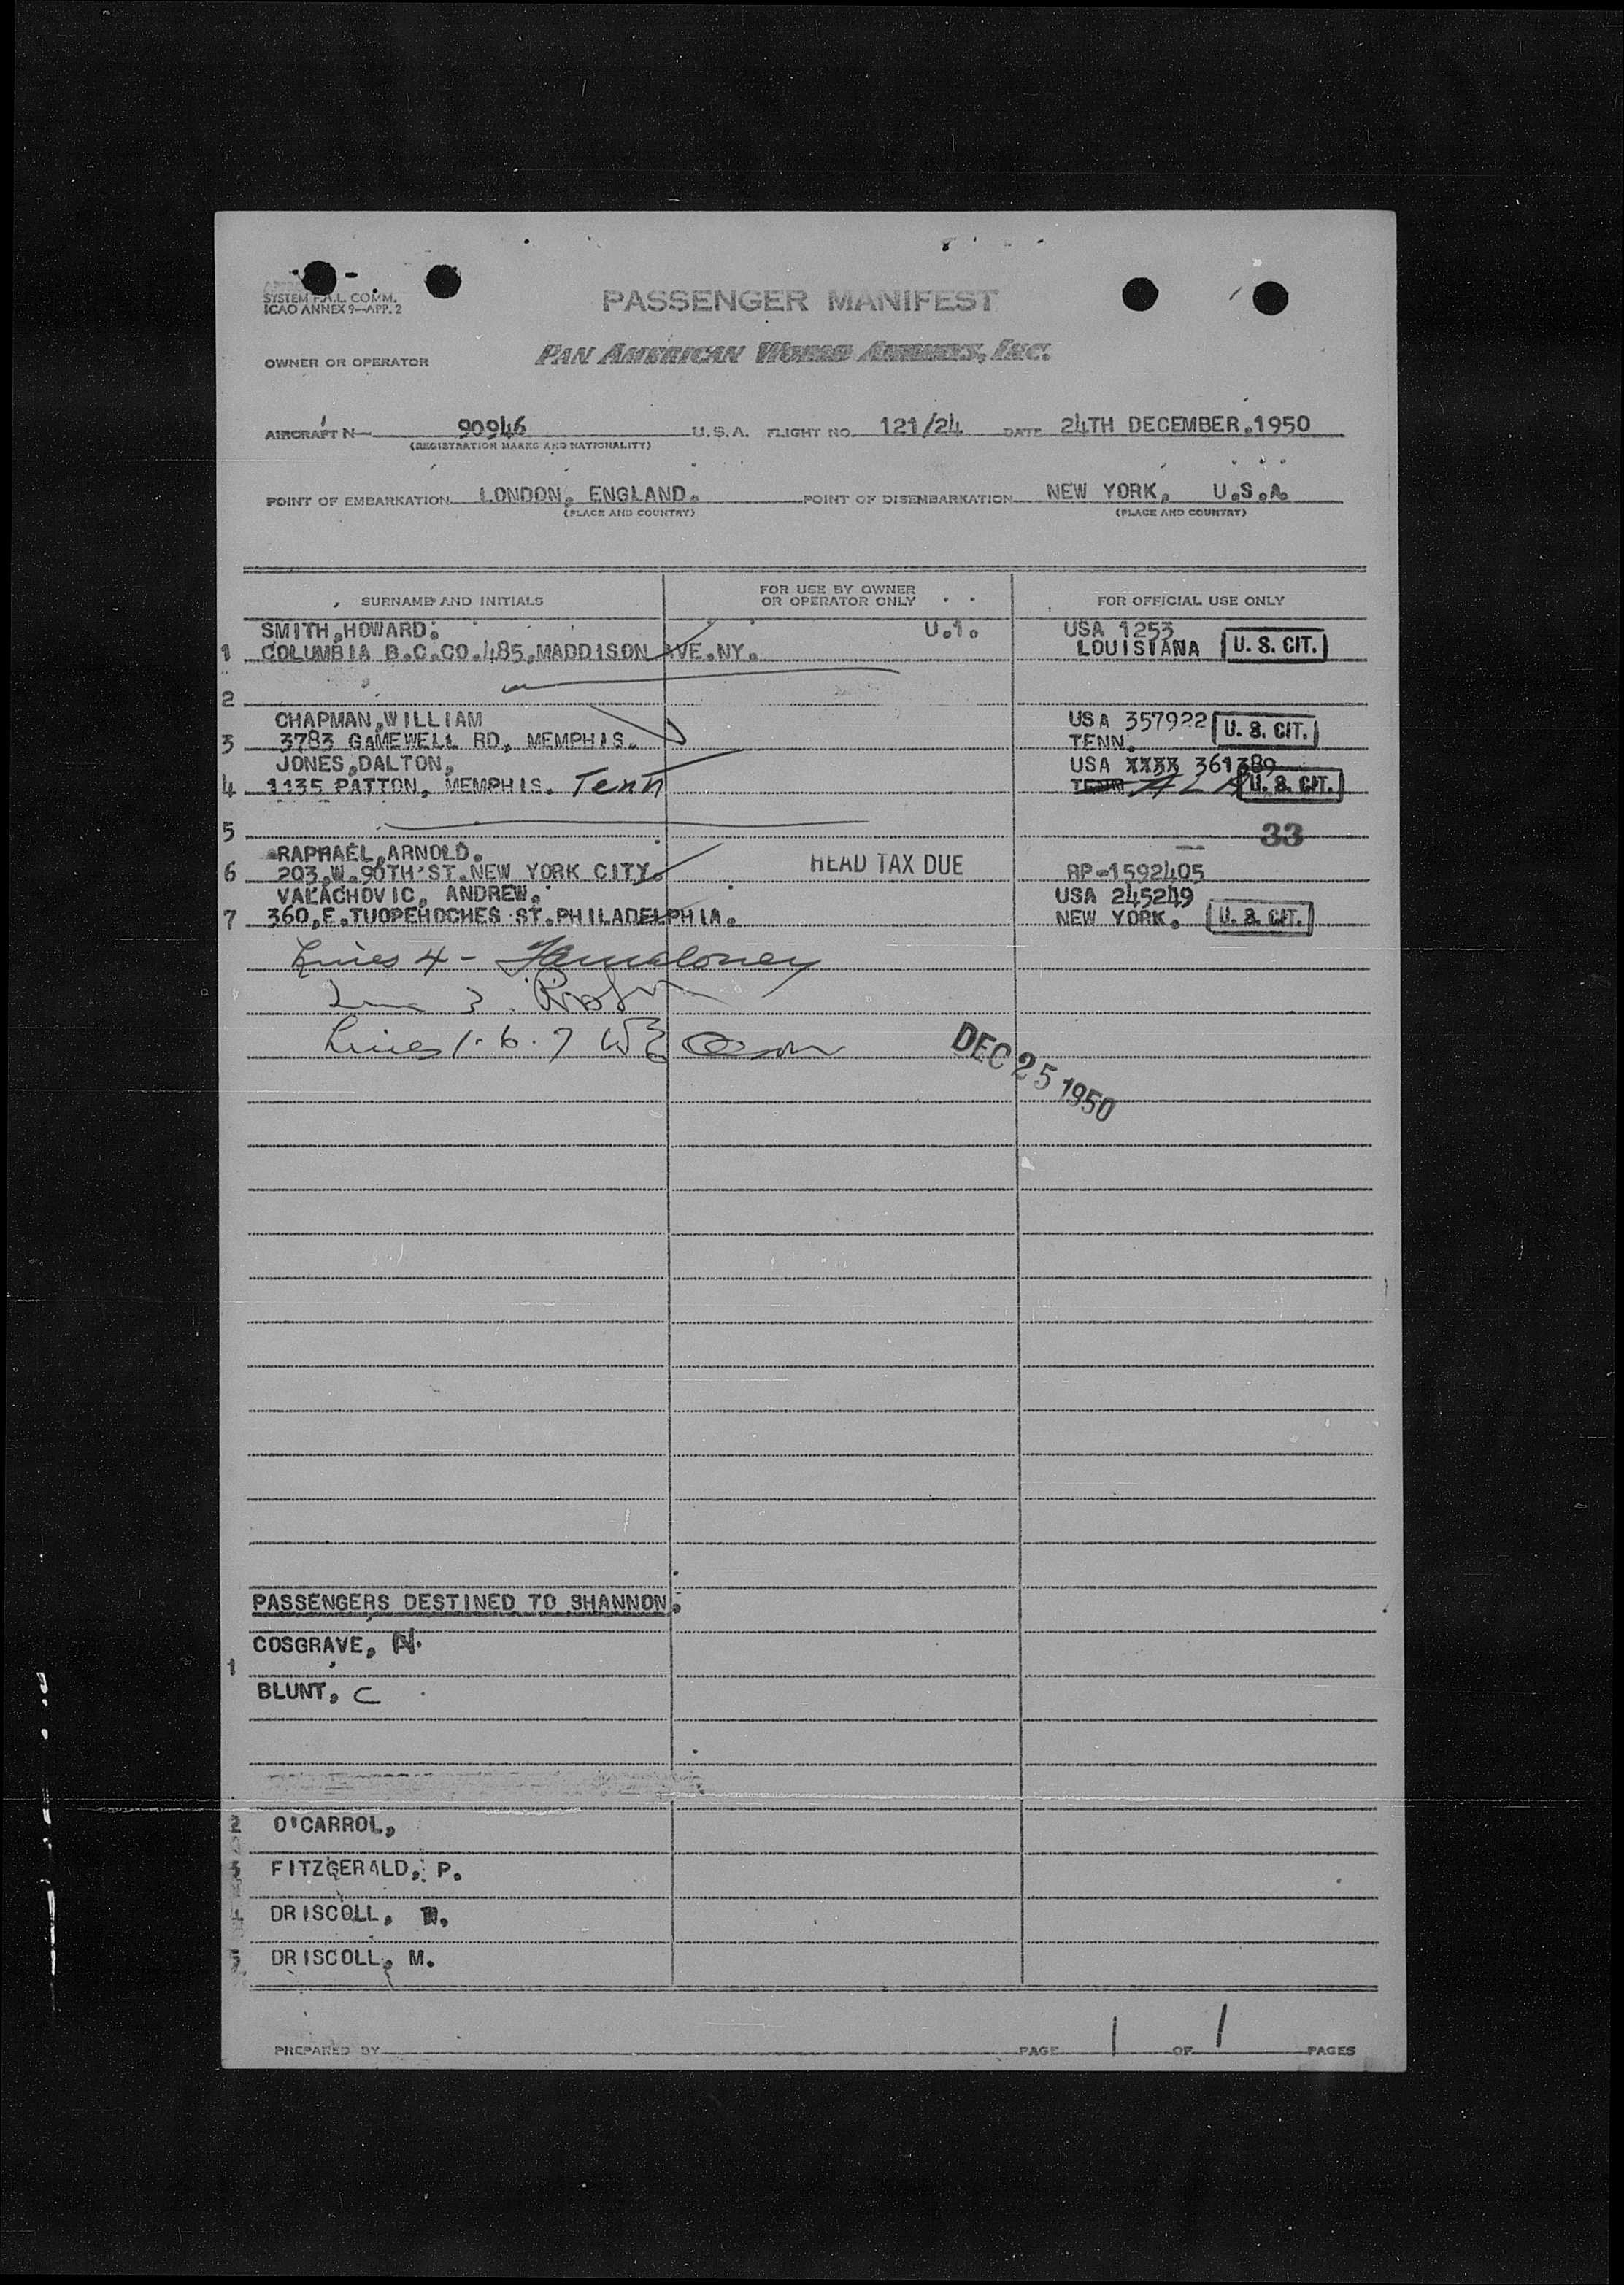 SYSTEM F.A.L. COMM.
ICAO ANNEX 9—APP. 2
PASSENGER MANIFEST
OWNER OR OPERATOR
PAN AMERICAN WORLD AIRWAYS, INC.
AIRCRAFT N— 90946 U.S.A. FLIGHT NO. 121/24 DATE 24TH DECEMBER.1950
(REGISTRATION MARKS AND NATIONALITY)
POINT OF EMBARKATION LONDON, ENGLAND. POINT OF DISEMBARKATION NEW YORK, U.S.A.
(PLACE AND COUNTRY) (PLACE AND COUNTRY)
SURNAME AND INITIALS FOR USE BY OWNER OR OPERATOR ONLY FOR OFFICIAL USE ONLY
SMITH,HOWARD. U.1. USA 1253
1 COLUMBIA B.C.CO.485,MADDISON AVE.NY. LOUISIANA U. S. CIT.
2
CHAPMAN,WILLIAM USA 357922 U. S. CIT.
3 3783 GAMEWELL RD, MEMPHIS. TENN.
JONES,DALTON, USA XXXX 361389
4 1135 PATTON, MEMPHIS. Tenn TENN ALA U. S. CIT.
5 33
RAPHAEL,ARNOLD.
6 203.W.90TH ST.NEW YORK CITY. HEAD TAX DUE RP-1592405
VALACHOVIC, ANDREW. USA 245249
7 360,E.TUOPEHOCHES ST.PHILADELPHIA. NEW YORK. U. S. CIT.
Lines 4 -
3.
Lines 1. 6. 7
DEC 25 1950
PASSENGERS DESTINED TO SHANNON.
COSGRAVE, N.
1
BLUNT, C
2 O'CARROL,
3 FITZGERALD, P.
4 DRISCOLL,
5 DRISCOLL, M.
PREPARED BY PAGE 1 OF 1 PAGES